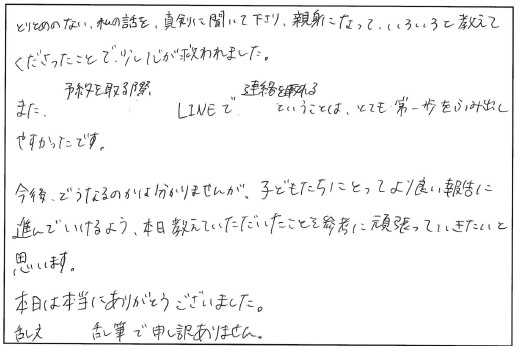 とりとめのない、私の話を、真剣に聞いて下さり、親身になって、いろいろと教えて
くださったことで、少し心が救われました。
また、予約を取る際 LINEで連絡を取れるということは、とても第一歩をふみ出し
やすかったです。
今後、どうなるのかは分かりませんが、子どもたちにとってより良い報告に
進んでいけるよう、本日教えていただいたことを参考に頑張っていきたいと
思います。
本日は本当にありがとうございました。
乱文 乱筆で申し訳ありません。